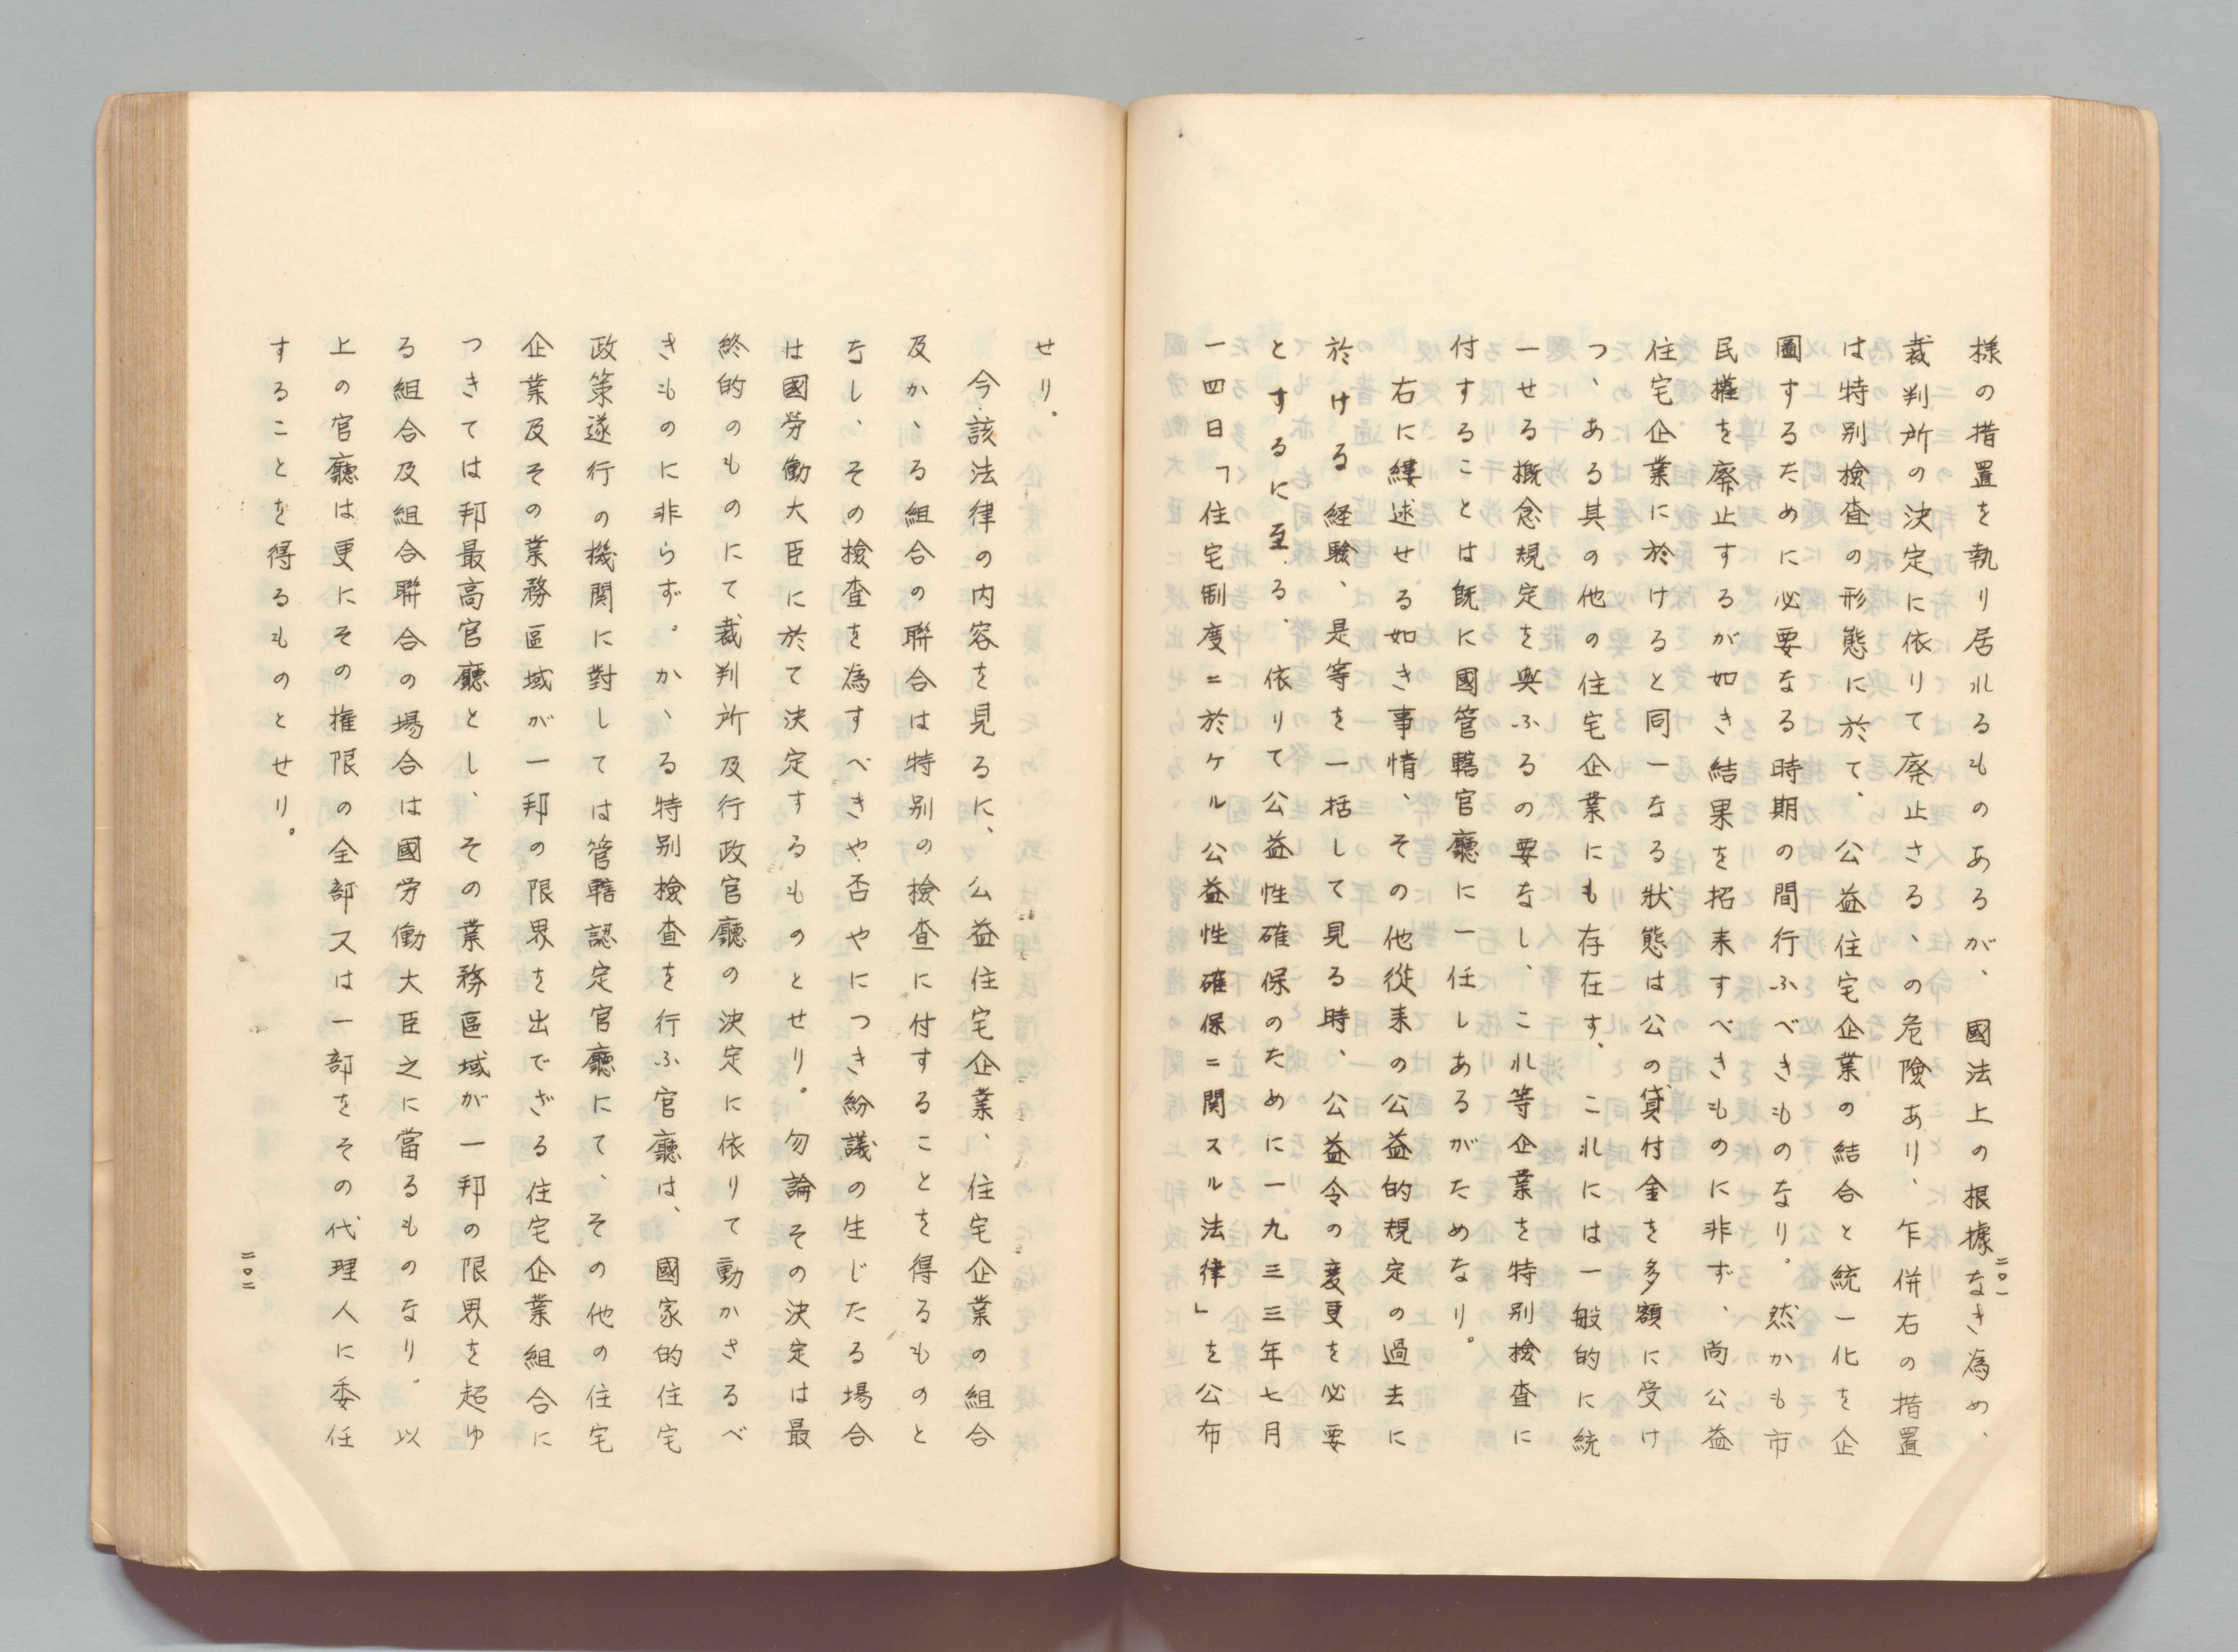 様の措置を執り居れるものあるが、國法上の根據なき為め、
裁判所の決定に依りて廃止さる、の危険あり、乍併右の措置
は特別檢査の形態に於て、公益住宅企業の結合と統一化を企
圖するために必要なる時期の間行ふべきものなり。然かも市
民權を廃止するが如き結果を招来すべきものに非ず、尚公益
住宅企業に於けると同一なる狀態は公の貸付金を多額に受け
つ、ある其の他の住宅企業にも存在す、これには一般的に統
一せる概念規定を與ふるの要なし、これ等企業を特別檢査に
付することは既に國管轄官廳に一任しあるがためなり。
右に縷述せる如き事情、その他從来の公益的規定の過去に
於ける経驗、是等を一括して見る時、公益令の変更を必要
とするに至る、依りて公益性確保のために一九三三年七月
一四日「住宅制度ニ於ケル公益性確保ニ関スル法律」を公布
二〇一
せり。
今該法律の内容を見るに、公益住宅企業、住宅企業の組合
及か、る組合の聯合は特別の檢査に付することを得るものと
なし、その檢査を為すべきや否やにつき紛議の生じたる場合
は國労働大臣に於て決定するものとせり。勿論その決定は最
終的のものにて裁判所及行政官廳の決定に依りて動かさるべ
きものに非らず。か、る特別檢査を行ふ官廳は、國家的住宅
政策遂行の機関に對しては管轄認定官廳にて、その他の住宅
企業及その業務區域が一邦の限界を出でざる住宅企業組合に
つきては邦最高官廳とし、その業務區域が一邦の限界を超ゆ
る組合及組合聯合の場合は國労働大臣之に當るものなり。以
上の官廳は更にその権限の全部又は一部をその代理人に委任
することを得るものとせり。
二〇二